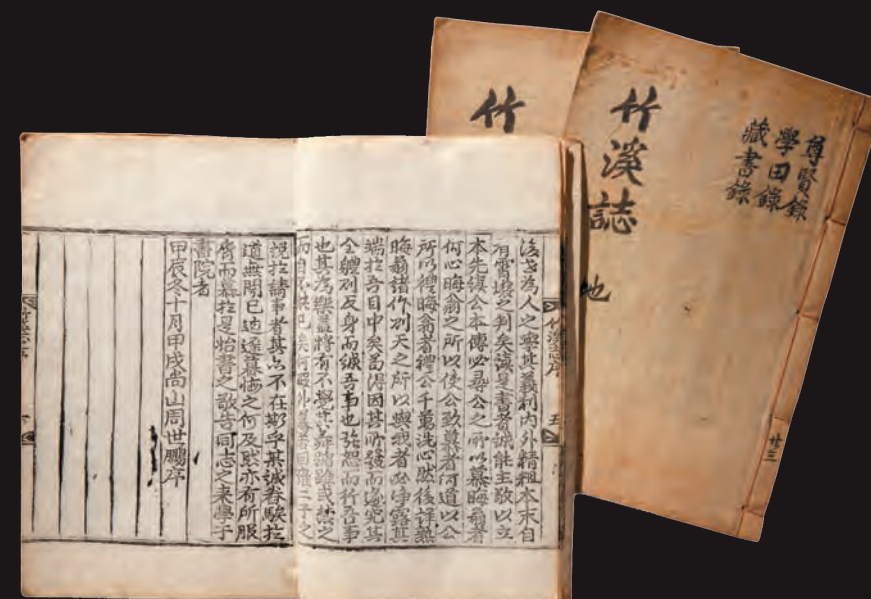 竹
竹溪誌
地
尊賢錄
學田錄
藏書錄
廿三
竹溪志序
五
後世為人之學其義利內外精粗本末自
有霄壤之判矣讀是書者誠能主敬以立
本先繹公本傳必尋公之所以慕晦翁者
何心晦翁之所以使公致慕者何道以公
所以禮晦翁者禮公千萬洗心然後詳熟
晦翁諸作則天之所以與我者必呈露其
端於吾目中矣苟得因其所發而遂究其
全體則反身而誠吾事也強恕而行吾事
也其為樂盖將有不學雖或禁之
而自不矣何暇外慕者回雍二子之
說於請事者其亦不在斯乎某誠騃於
道無聞已迫遲暮悔之何及然亦有所服
膺而慕於是書之敬告同志之来學于
書院者
甲辰冬十月甲戌尚山周世鵬序